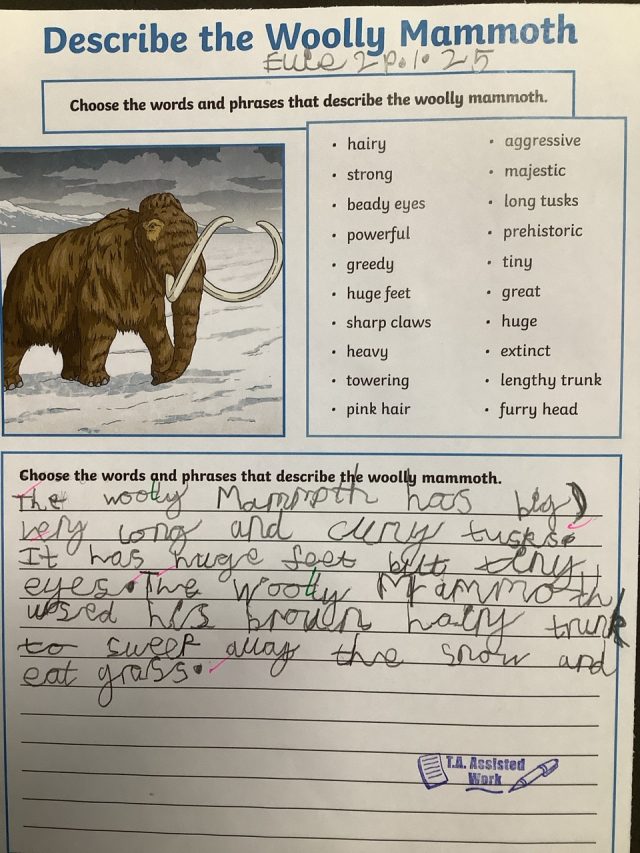 Describe the Woolly Mammoth
2 p.1.25
Choose the words and phrases that describe the woolly mammoth.
• hairy
• strong
• beady eyes
• powerful
• greedy
• huge feet
• sharp claws
• heavy
• towering
• pink hair
• aggressive
• majestic
• long tusks
• prehistoric
• tiny
• great
• huge
• extinct
• lengthy trunk
• furry head
Choose the words and phrases that describe the woolly mammoth.
The woolly Mammoth has big,
very long and curvy tusks.
It has huge feet but tiny
eyes. The Woolly Mammoth
used his broun hairy trunk
to sweep away the snow and
eat grass.
T.A. Assisted
Work